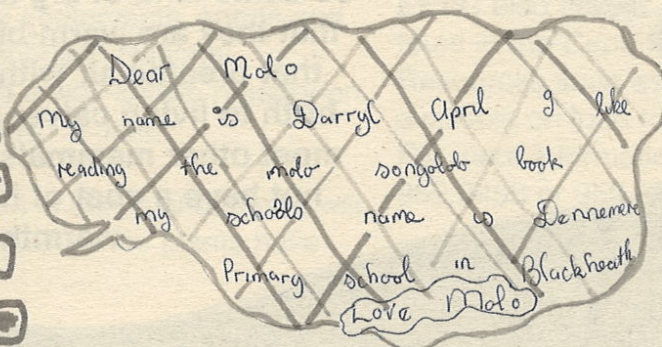 Dear Molo
My name is Darryl April I like
reading the molo songololo book
my schools name is Dennemere
Primary school in Blackheath
Love Molo